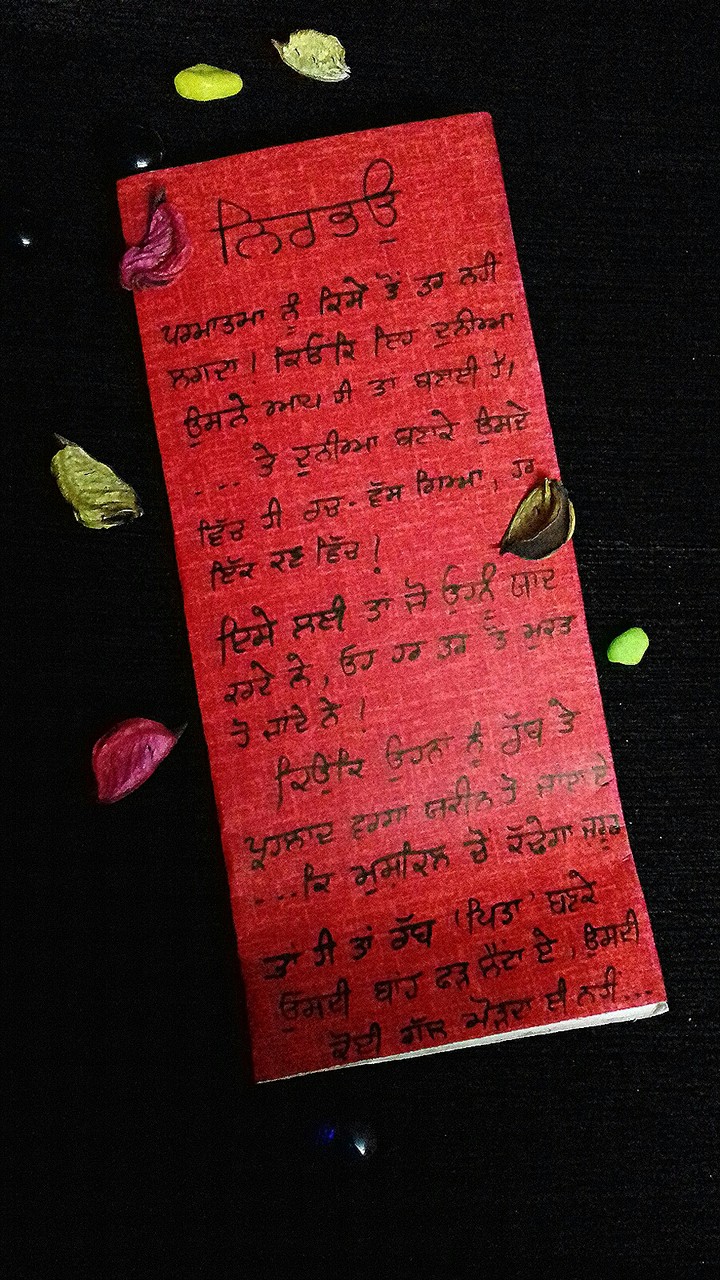 ਨਿਰਭਉ
ਪਰਮਾਤਮਾ ਨੂੰ ਕਿਸੇ ਤੋਂ ਡਰ ਨਹੀਂ
ਲਗਦਾ। ਕਿਓਂਕਿ ਇਹ ਦੁਨੀਆ
ਉਸਨੇ ਆਪ ਹੀ ਤਾਂ ਬਣਾਈ ਹੈ।
... ਤੇ ਦੁਨੀਆ ਬਣਾਕੇ ਉਸਦੇ
ਵਿੱਚ ਹੀ ਰਚ-ਵੱਸ ਗਿਆ, ਹਰ
ਇੱਕ ਕਣ ਵਿੱਚ!
ਇਸੇ ਲਈ ਤਾਂ ਜੋ ਓਹਨੂੰ ਯਾਦ
ਕਰਦੇ ਨੇ, ਓਹ ਹਰ ਡਰ ਤੋਂ ਮੁਕਤ
ਹੋ ਜਾਂਦੇ ਨੇ!
ਕਿਉਂਕਿ ਉਹਨਾਂ ਨੂੰ ਰੱਬ ਤੇ
ਪ੍ਰਹਲਾਦ ਵਰਗਾ ਯਕੀਨ ਹੋ ਜਾਂਦਾ ਏ
...ਕਿ ਮੁਸ਼ਕਿਲ ਚੋਂ ਕੱਢੇਗਾ ਜ਼ਰੂਰ
ਤਾਂ ਹੀ ਤਾਂ ਰੱਬ 'ਪਿਤਾ' ਬਣਕੇ
ਉਸਦੀ ਬਾਂਹ ਫੜ ਲੈਂਦਾ ਏ, ਉਸਦੀ
ਕੋਈ ਗੱਲ ਮੋੜਦਾ ਈ ਨਹੀਂ...